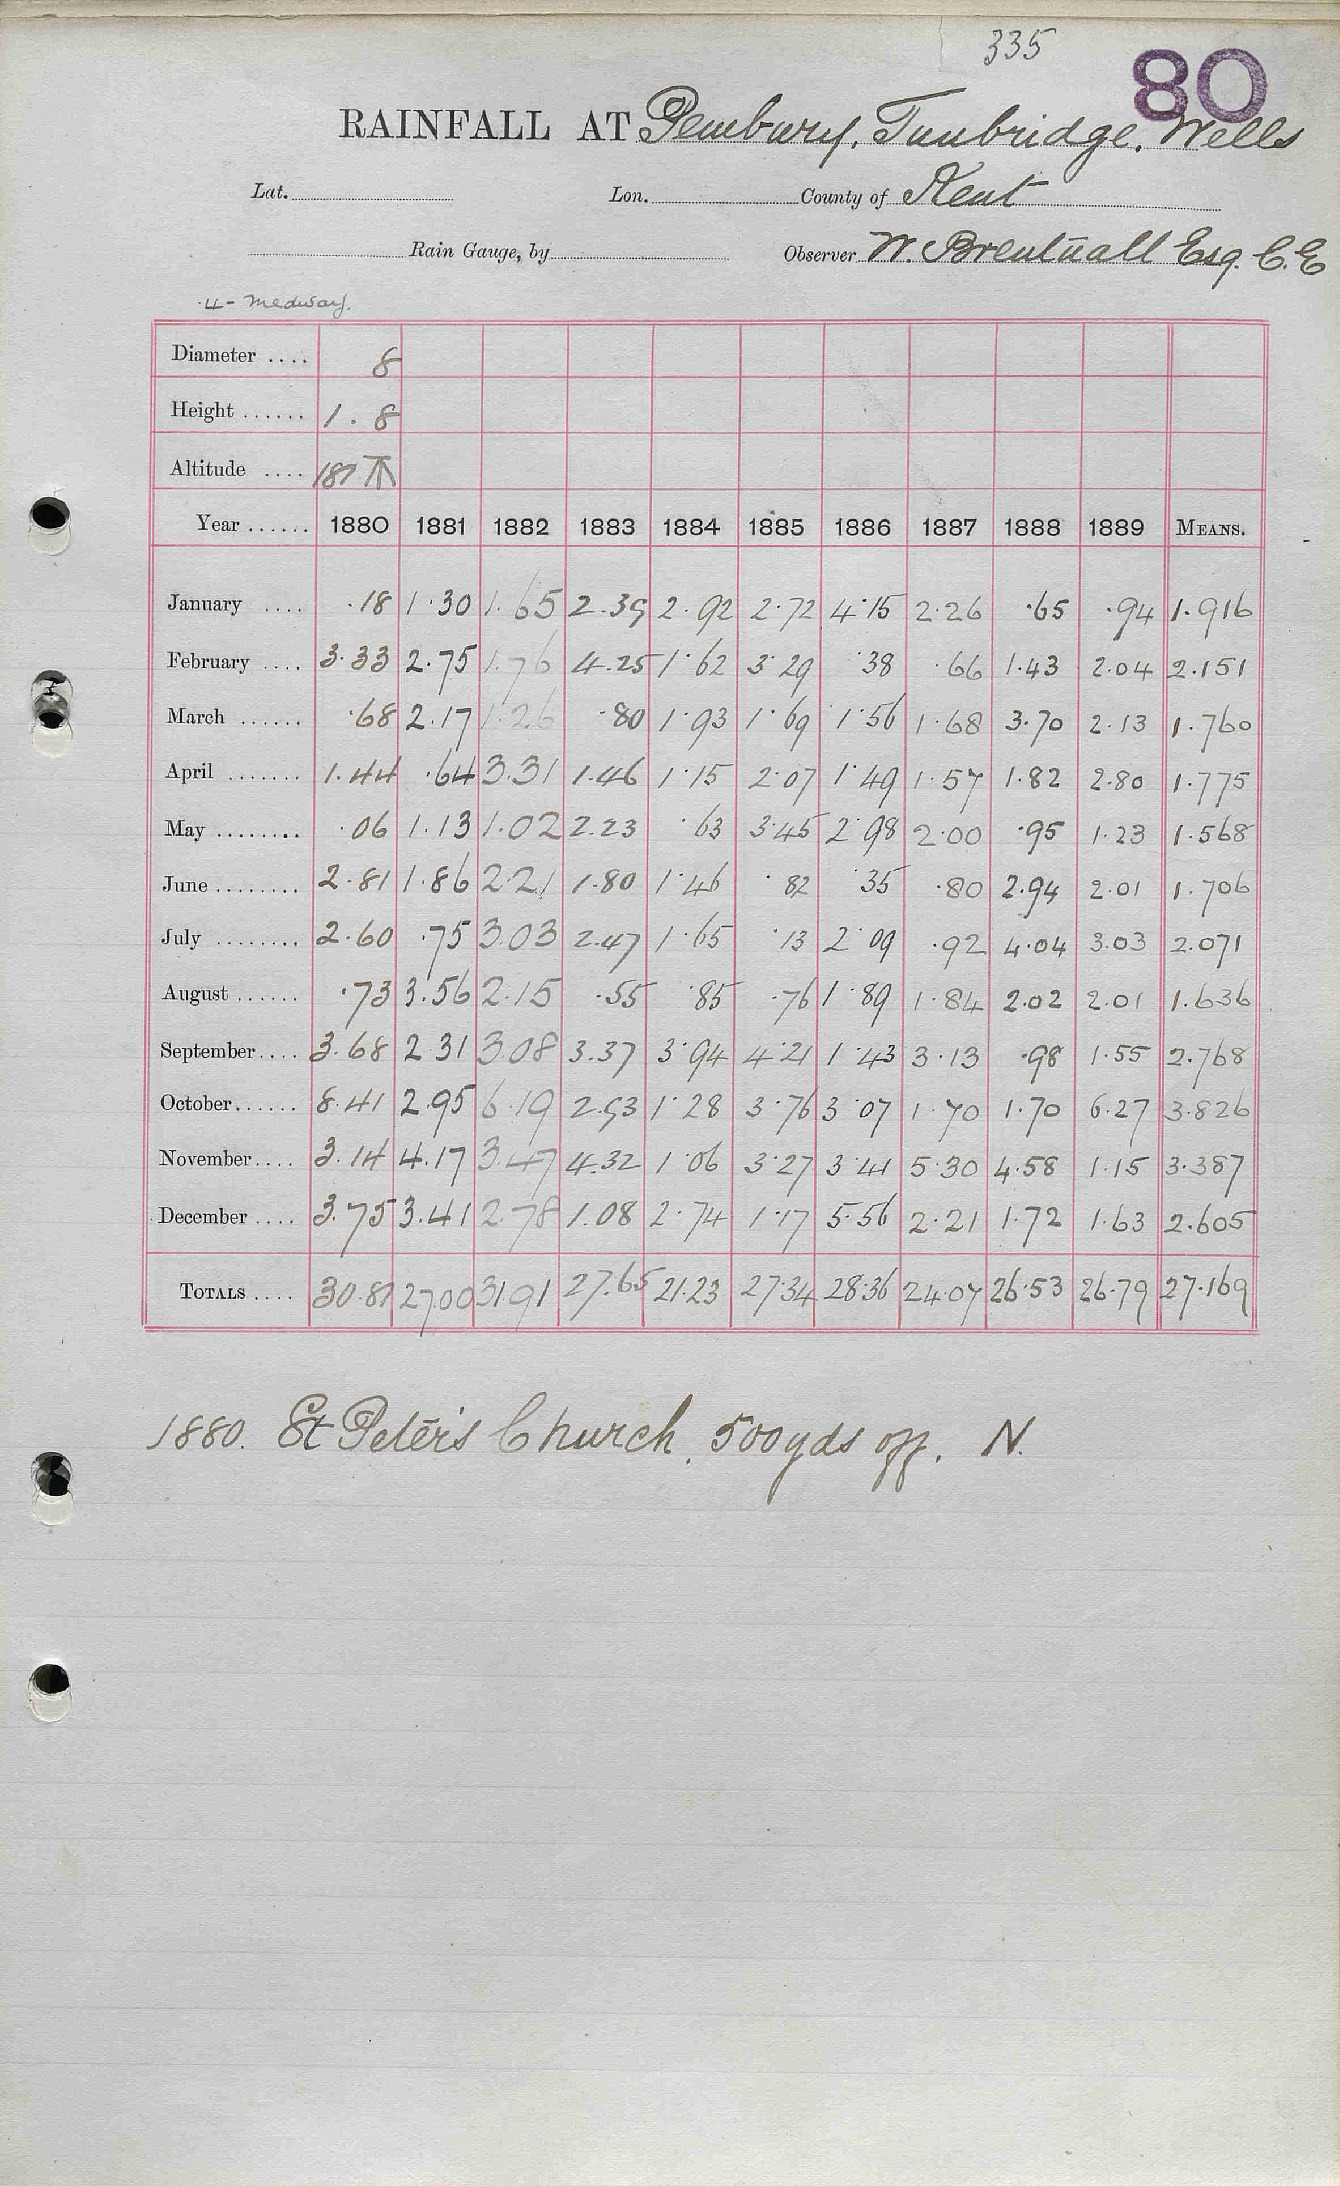 335
80
RAINFALL AT Pembury, Tunbridge, Wells
Lat. Lon. County of Kent
Rain Gauge, by Observer W. Brentnall Esq. C.E
4 - Medway.
Diameter .... 8
Height ...... 1 . 8
Altitude .... 187
Year ...... 1880 1881 1882 1883 1884 1885 1886 1887 1888 1889 MEANS.
January .... .18 1.30 1.65 2.39 2.92 2.72 4.15 2.26 .65 .94 1.916
February .... 3.33 2.75 1.76 4.25 1.62 3.29 .38 .66 1.43 2.04 2.151
March ...... .68 2.17 1.26 .80 1.93 1.69 1.56 1.68 3.70 2.13 1.760
April ....... 1.44 .64 3.31 1.46 1.15 2.07 1.49 1.57 1.82 2.80 1.775
May ........ .06 1.13 1.02 2.23 .63 3.45 2.98 2.00 .95 1.23 1.568
June ........ 2.81 1.86 2.21 1.80 1.46 .82 .35 .80 2.94 2.01 1.706
July ........ 2.60 .75 3.03 2.47 1.65 .13 2.09 .92 4.04 3.03 2.071
August ...... .73 3.56 2.15 .55 .85 .76 1.89 1.84 2.02 2.01 1.636
September.... 3.68 2.31 3.08 3.37 3.94 4.21 1.43 3.13 .98 1.55 2.768
October...... 8.41 2.95 6.19 2.93 1.28 3.76 3.07 1.70 1.70 6.27 3.826
November.... 3.14 4.17 3.47 4.32 1.06 3.27 3.41 5.30 4.58 1.15 3.387
December .... 3.75 3.41 2.78 1.08 2.74 1.17 5.56 2.21 1.72 1.63 2.605
TOTALS .... 30.81 27.00 31.91 27.65 21.23 27.34 28.36 24.07 26.53 26.79 27.169
1880. St Peter's Church, 500yds off. N.